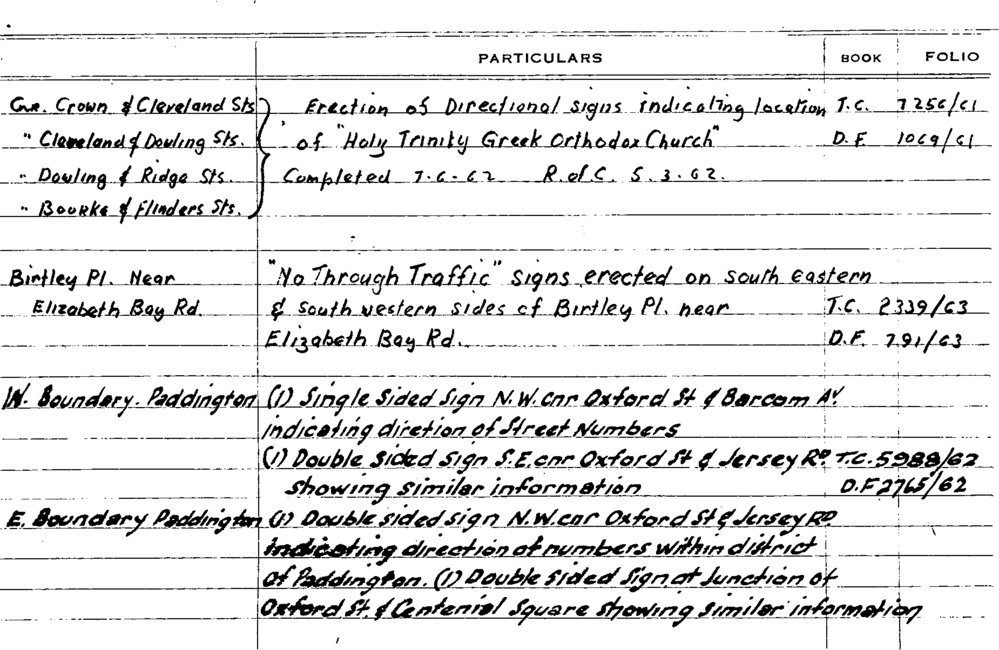 PARTICULARS BOOK FOLIO
Cnr. Crown & Cleveland Sts Erection of Directional signs indicating location T.C. 7256/61
" Cleveland & Dowling Sts. of "Holy Trinity Greek Orthodox Church" D.F. 1069/61
" Dowling & Ridge Sts. Completed 7-6-62 R.of C. 5.3.62.
" Bourke & Flinders Sts.
Birtley Pl. Near "No Through Traffic" signs erected on south eastern
Elizabeth Bay Rd. & south western sides of Birtley Pl. near T.C. 2339/63
Elizabeth Bay Rd. D.F. 791/63
W. Boundary. Paddington (1) Single Sided Sign N.W. cnr Oxford St & Barcom Av.
indicating diretion of Street Numbers
(1) Double sided sign S.E. cnr Oxford St & Jersey Rd. T.C. 5988/62
showing similar information D.F 2765/62
E. Boundary Paddington (1) Double sided sign N.W. cnr Oxford St & Jersey Rd.
indicating direction of numbers within district
of Paddington. (1) Double sided Sign at Junction of
Oxford St. & Centenial Square showing similar information